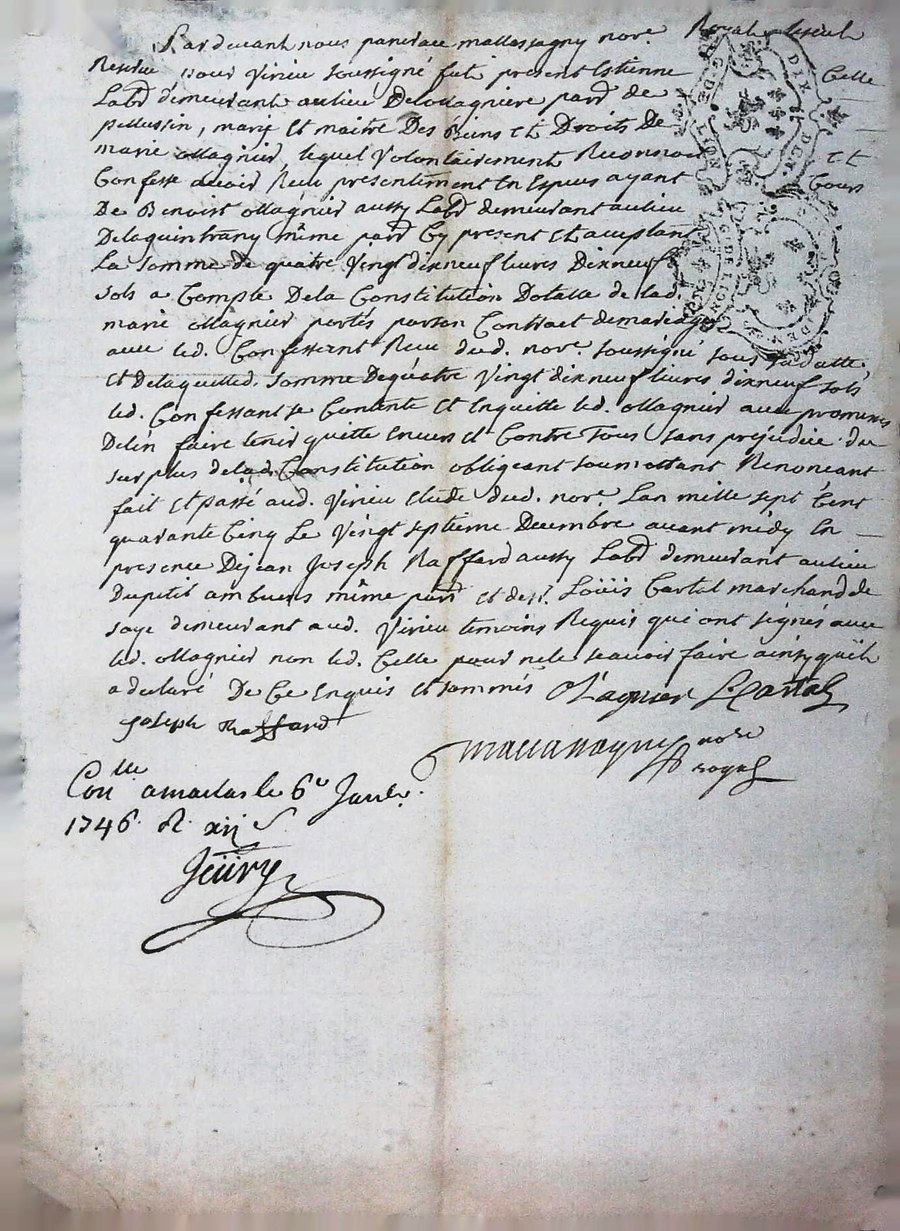 Pardevant nous pancrace mallassagny nore. Royal
Reservé pour Virieu soussigné fut present Estienne Celle
Labr demeurant au lieu De parr de
pellussin, mary Et maitre Des Biens Et Droits De
marie Magnier, lequel Volontairement Reconnoit Et
Confesse avoir Receu presentement En Especes ayant Cours
De Benoist Magnier aussy Labr demeurant au lieu
Delaquintrany même parr Cy present Et acceptant
La Somme de quatre Vingt dixneuf livres Dixneuf
Sols a Compte Dela Constitution Dotalle de lad.
marie Magnier portés par son Contract de mariage
avec led. Confessant Receu dud. nore. soussigné sous sa datte,
Et De laquelled. Somme De quatre Vingt dixneuf livres dixneuf sols
led. Confessant se Contente Et En quitte led. Magnier avec promesses
Delen faire tenir quitte Envers Et Contre Tous sans prejudice du
surplus delad. Constitution obligeant soumettant Renonceant
fait Et passé aud. Virieu Etude dud. nore. Lan mille sept Cent
quarante Cinq Le Vingt septieme Decembre avant midy En
presence De jean Joseph Raffard aussy Labr demeurant au lieu
Dupetit ambuens même parr Et de sr. Loüis Cartal marchand de
soye demeurant aud. Virieu temoins Requis qui ont signés avec
led. Magnier non led. Celle pour ne le scavoir faire ainsy quil
a declaré De Ce Enquis Et sommés Magnier L. Cartal
Joseph Raffard
nore
royal
Conlle amaclas le 6e Janv.
1746. R. xij s.
Jeüry